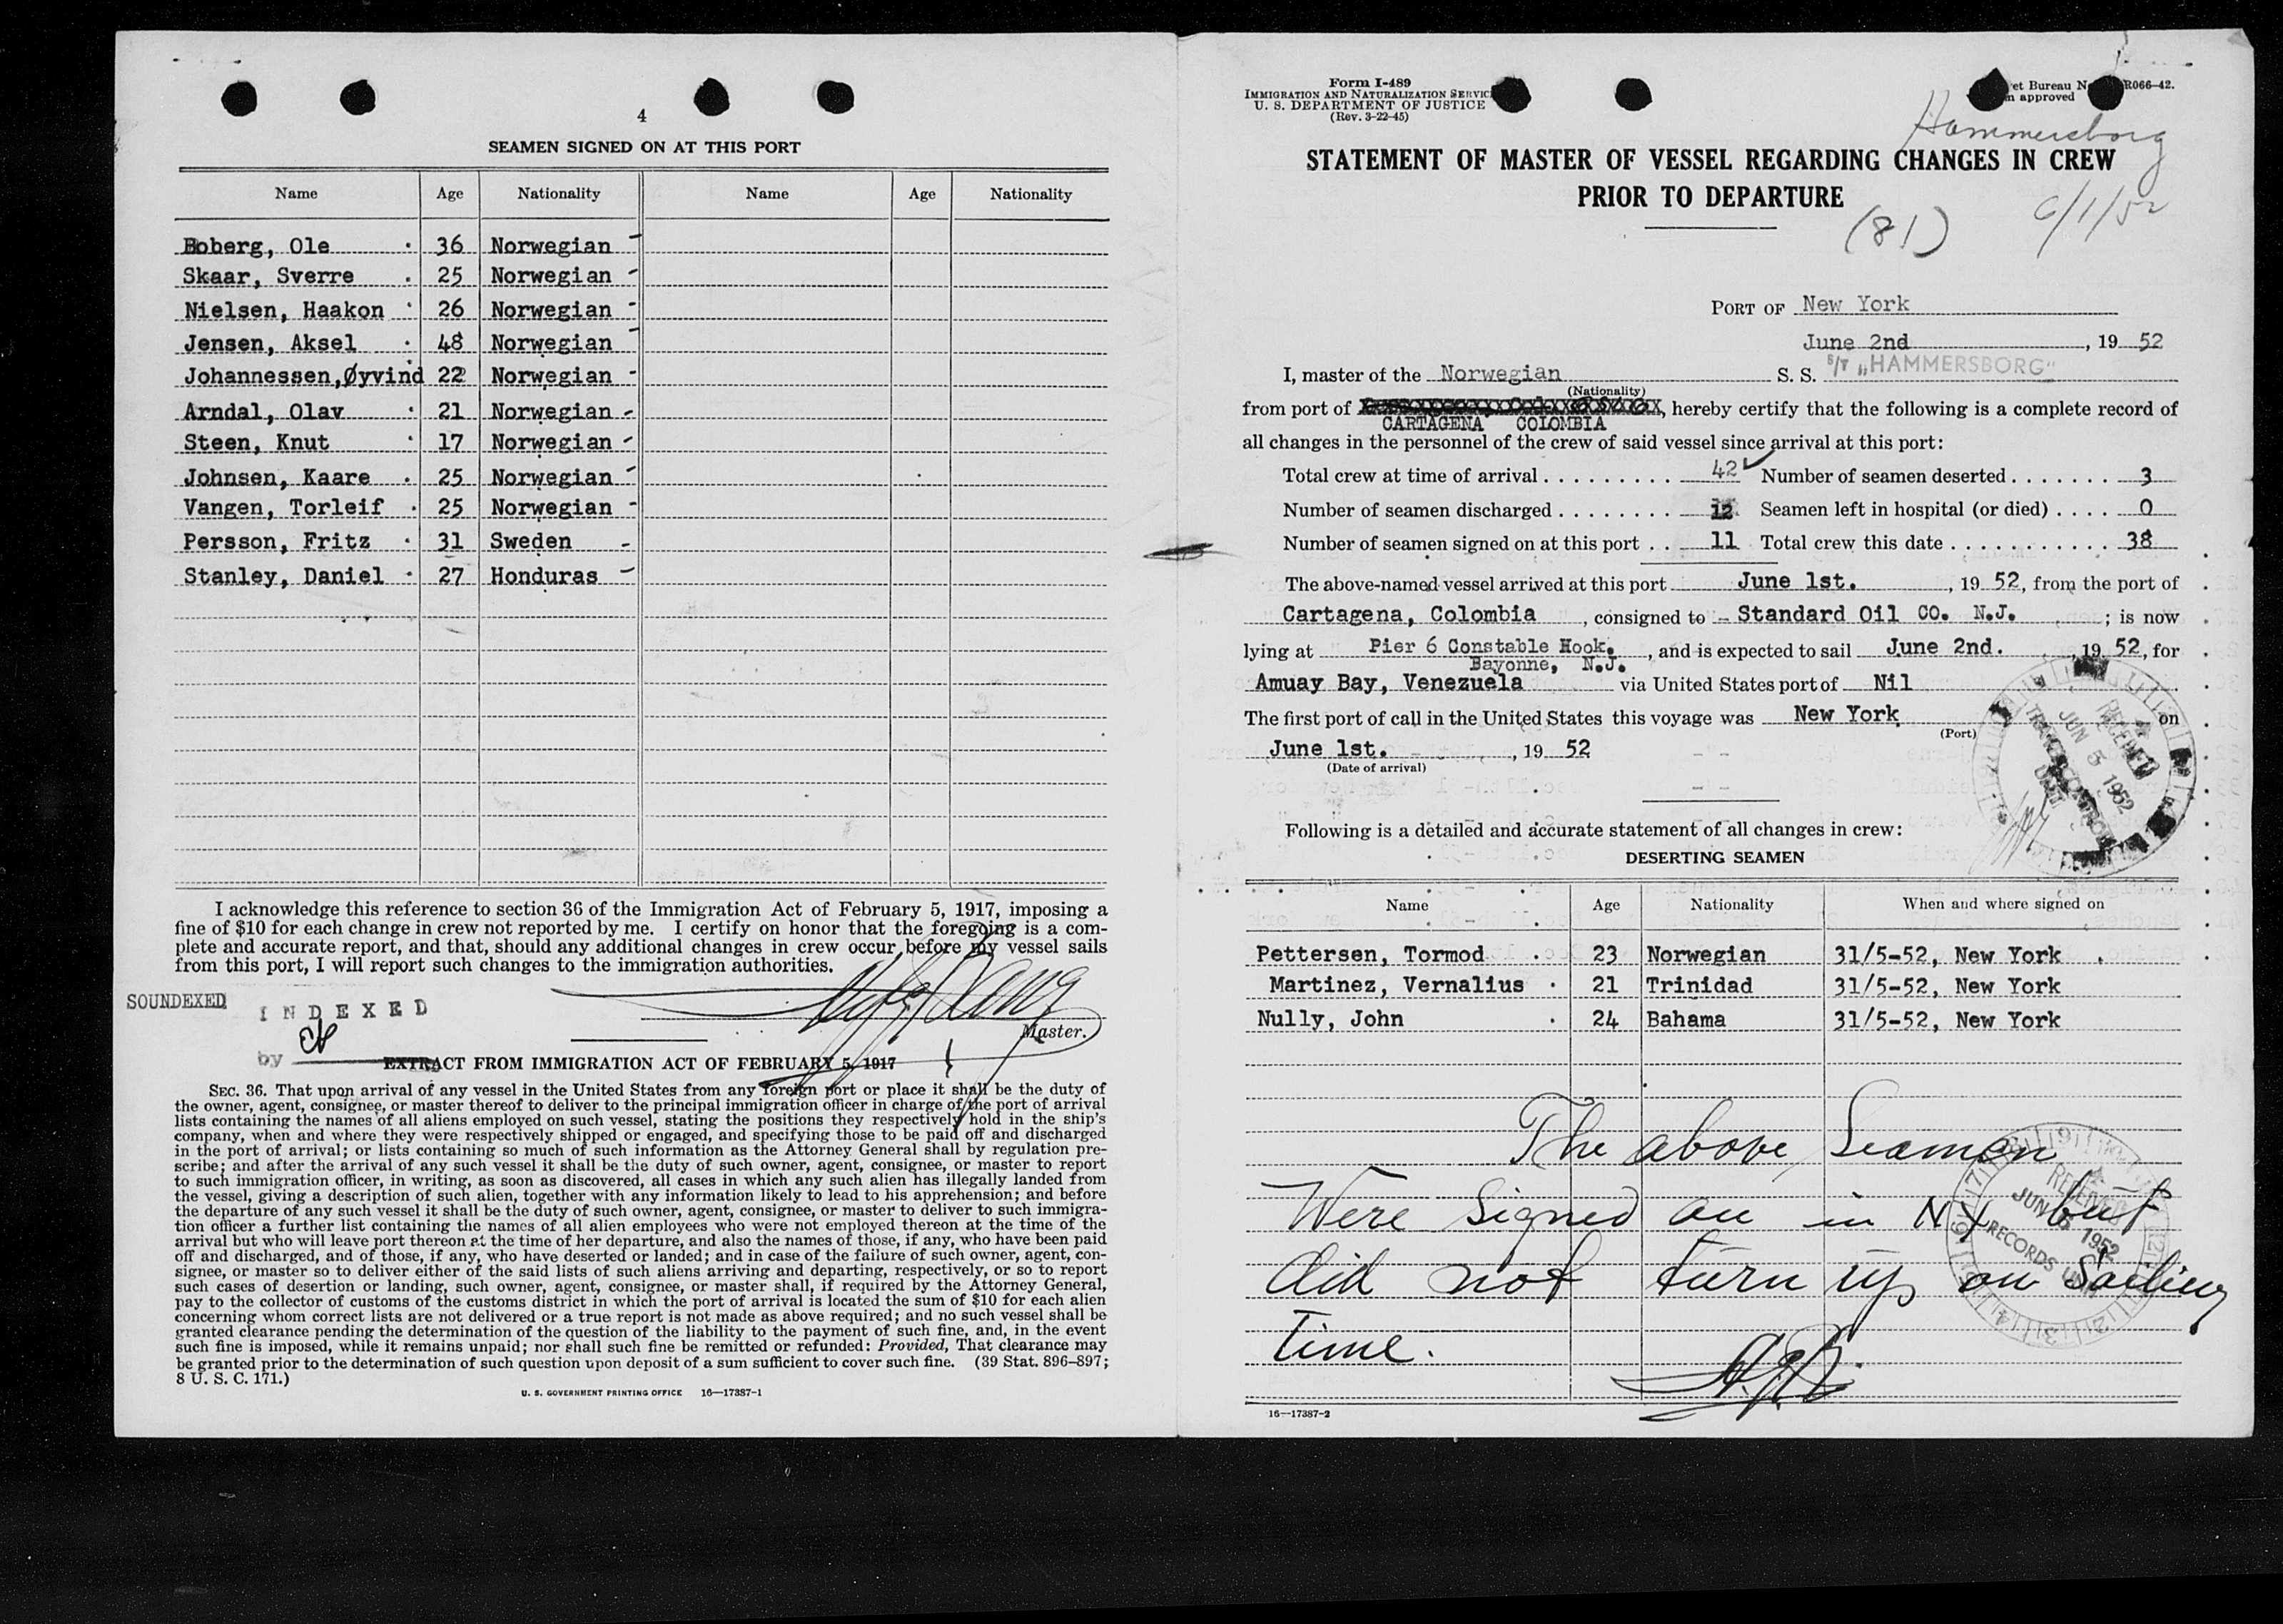 4
SEAMEN SIGNED ON AT THIS PORT
Name Age Nationality Name Age Nationality
Boberg, Ole 36 Norwegian
Skaar, Sverre 25 Norwegian
Nielsen, Haakon 26 Norwegian
Jensen, Aksel 48 Norwegian
Johannessen, Øyvind 22 Norwegian
Arndal, Olav 21 Norwegian
Steen, Knut 17 Norwegian
Johnsen, Kaare 25 Norwegian
Vangen, Torleif 25 Norwegian
Persson, Fritz 31 Sweden
Stanley, Daniel 27 Honduras
I acknowledge this reference to section 36 of the Immigration Act of February 5, 1917, imposing a
fine of $10 for each change in crew not reported by me. I certify on honor that the foregoing is a com-
plete and accurate report, and that, should any additional changes in crew occur before my vessel sails
from this port, I will report such changes to the immigration authorities.
SOUNDEXED
INDEXED
Master.
by
EXTRACT FROM IMMIGRATION ACT OF FEBRUARY 5, 1917
SEC. 36. That upon arrival of any vessel in the United States from any foreign port or place it shall be the duty of
the owner, agent, consignee, or master thereof to deliver to the principal immigration officer in charge of the port of arrival
lists containing the names of all aliens employed on such vessel, stating the positions they respectively hold in the ship's
company, when and where they were respectively shipped or engaged, and specifying those to be paid off and discharged
in the port of arrival; or lists containing so much of such information as the Attorney General shall by regulation pre-
scribe; and after the arrival of any such vessel it shall be the duty of such owner, agent, consignee, or master to report
to such immigration officer, in writing, as soon as discovered, all cases in which any such alien has illegally landed from
the vessel, giving a description of such alien, together with any information likely to lead to his apprehension; and before
the departure of any such vessel it shall be the duty of such owner, agent, consignee, or master to deliver to such immigra-
tion officer a further list containing the names of all alien employees who were not employed thereon at the time of the
arrival but who will leave port thereon at the time of her departure, and also the names of those, if any, who have been paid
off and discharged, and of those, if any, who have deserted or landed; and in case of the failure of such owner, agent, con-
signee, or master so to deliver either of the said lists of such aliens arriving and departing, respectively, or so to report
such cases of desertion or landing, such owner, agent, consignee, or master shall, if required by the Attorney General,
pay to the collector of customs of the customs district in which the port of arrival is located the sum of $10 for each alien
concerning whom correct lists are not delivered or a true report is not made as above required; and no such vessel shall be
granted clearance pending the determination of the question of the liability to the payment of such fine, and, in the event
such fine is imposed, while it remains unpaid; nor shall such fine be remitted or refunded: Provided, That clearance may
be granted prior to the determination of such question upon deposit of a sum sufficient to cover such fine. (39 Stat. 896–897;
8 U. S. C. 171.)
U. S. GOVERNMENT PRINTING OFFICE 16—17387-1
Form I-489
IMMIGRATION AND NATURALIZATION SERVIC
U. S. DEPARTMENT OF JUSTICE
(Rev. 3-22-45)
et Bureau N R066-42.
approved
Hammersborg
STATEMENT OF MASTER OF VESSEL REGARDING CHANGES IN CREW
PRIOR TO DEPARTURE
(81) 6/1/52
PORT OF New York
June 2nd, 19 52
I, master of the Norwegian S. S. S/T „HAMMERSBORG"
(Nationality)
from port of , hereby certify that the following is a complete record of
CARTAGENA COLOMBIA
all changes in the personnel of the crew of said vessel since arrival at this port:
Total crew at time of arrival 42 Number of seamen deserted 3
Number of seamen discharged 12 Seamen left in hospital (or died) 0
Number of seamen signed on at this port 11 Total crew this date 38
The above-named vessel arrived at this port June 1st., 19 52, from the port of
Cartagena, Colombia, consigned to - Standard Oil CO. N.J. ; is now
lying at Pier 6 Constable Hook., and is expected to sail June 2nd., 19 52, for
Bayonne, N.J.
Amuay Bay, Venezuela via United States port of Nil
The first port of call in the United States this voyage was New York on
(Port)
June 1st., 19 52
(Date of arrival)
RECEIVED
JUN 5 1952
UNIT
Following is a detailed and accurate statement of all changes in crew:
DESERTING SEAMEN
Name Age Nationality When and where signed on
Pettersen, Tormod 23 Norwegian 31/5-52, New York
Martinez, Vernalius 21 Trinidad 31/5-52, New York
Nully, John 24 Bahama 31/5-52, New York
The above Seamen
Were Signed on in NY but
did not turn up on Sailing
time.
RECEIVED
JUN 1952
RECORDS
16—17387-2